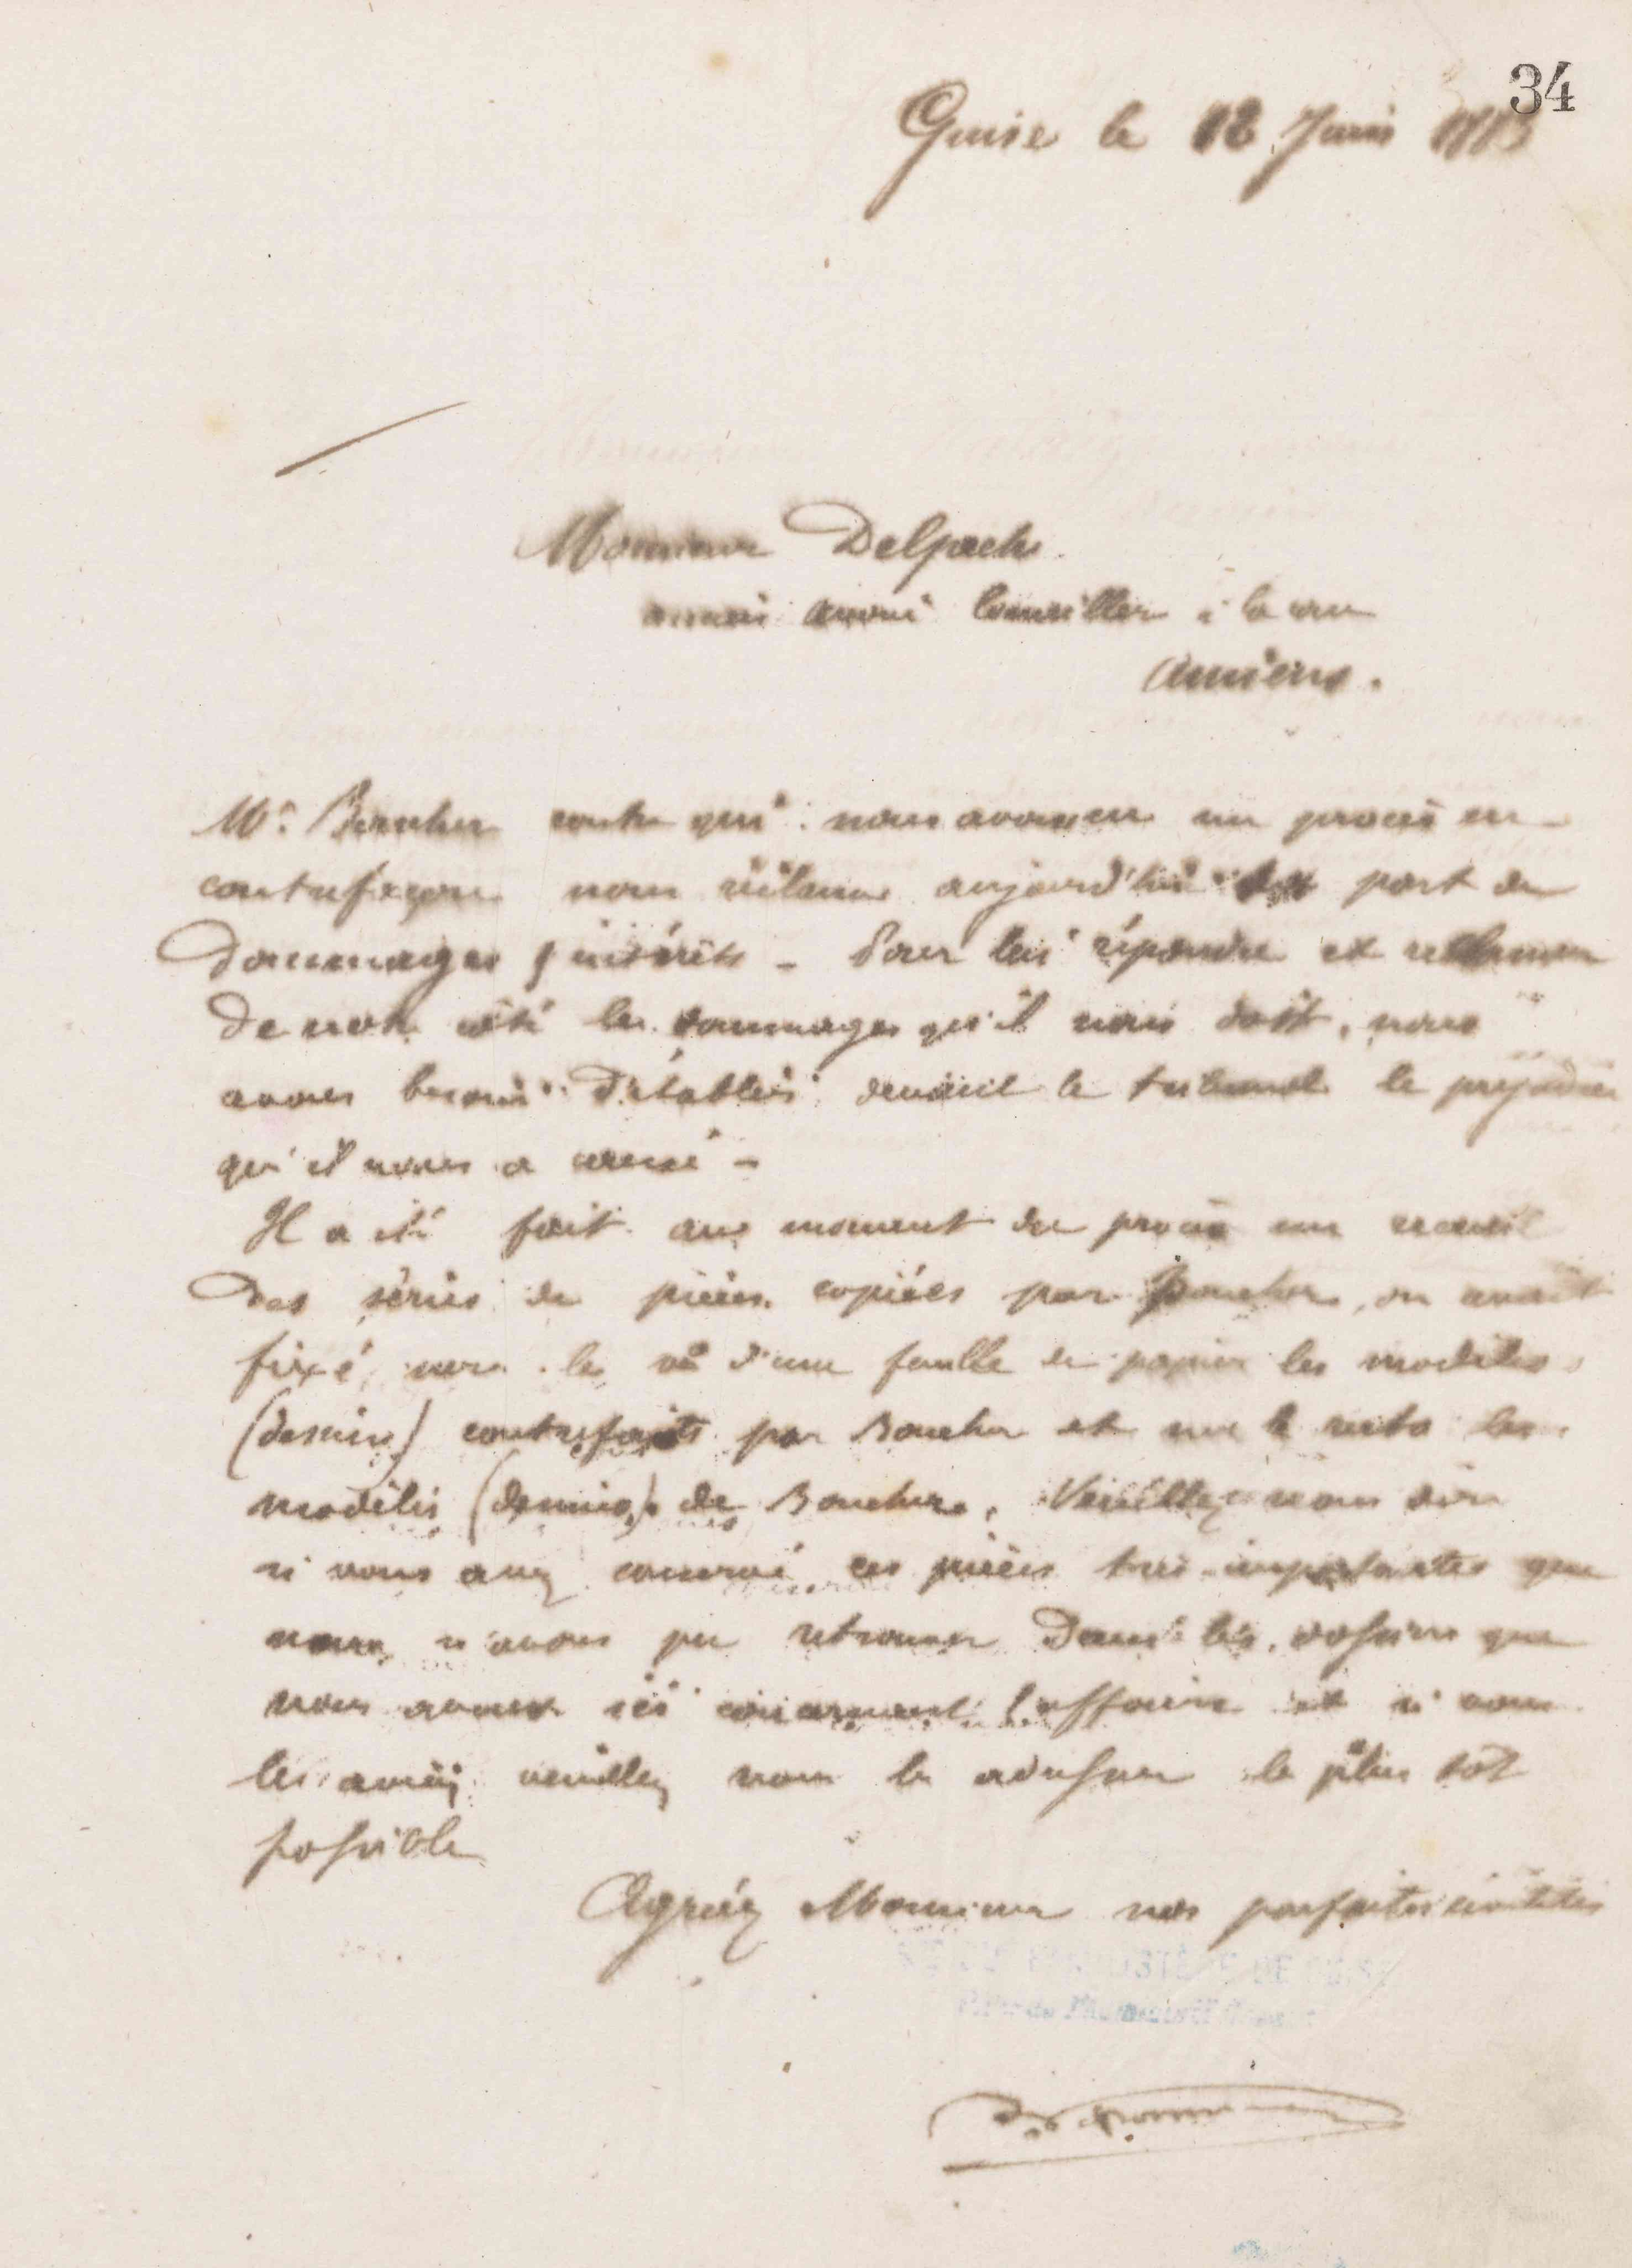 34
Guise le 12 Juin
Monsieur Delpech
ancien avoué Conseiller à la cour
Amiens.
Mr. Boucher contre qui nous avons eu un procès en
contrefaçon nous réclame aujourd'hui part de
dommages intérêts - Pour lui répondre et réclamer
de notre côté les dommages qu'il nous doit, nous
avons besoin d'établir devant le tribunal le préjudice
qu'il nous a causé -
Il a été fait au moment du procès un recueil
des séries de pièces copiées par Boucher, on avait
fixé vers le vo d'une feuille de papier les modèles
(dessins) contrefaits par Boucher et sur le recto les
modèles (dessins) de Boucher. Veuillez nous dire
si vous avez conservé ces pièces très importantes que
nous n'avons pu retrouver dans les dossiers que
nous avons ici concernant l'affaire et si vous
les aviez veuillez nous les adresser le plus tôt
possible
Agréez Monsieur nos parfaites civilités